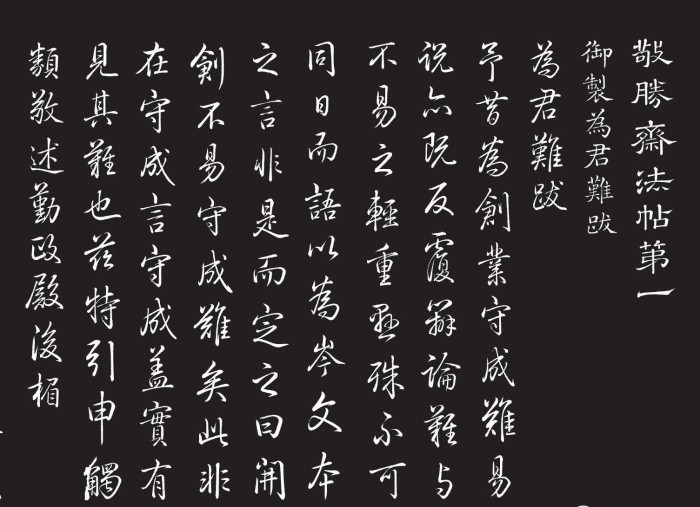 敬勝齋法帖第一
御製為君難跋
為君難跋
予昔為創業守成難易
說亦既反覆辯論難与
不易之輕重懸殊不可
同日而語以為岑文本
之言非是而定之曰開
剏不易守成難矣此非
在守成言守成盖實有
見其難也兹特引申觸
類敬述勤政殿後楣